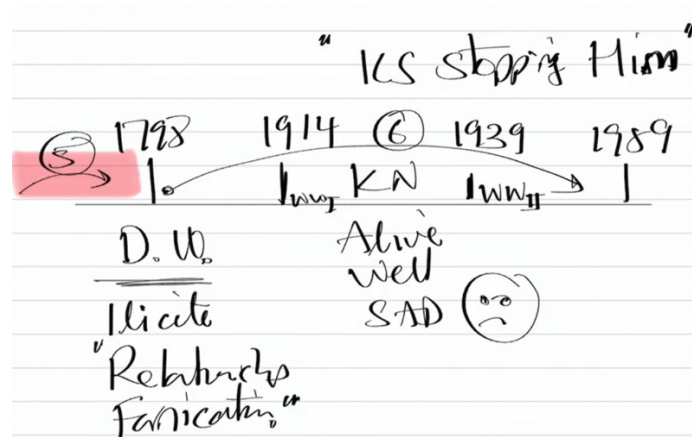 "KS Stopping Him"
5 1798 1914 6 1939 1989
WWI KN WWII
D.W. Alive
Well
Ilicite SAD
"Relationships
Fornication"